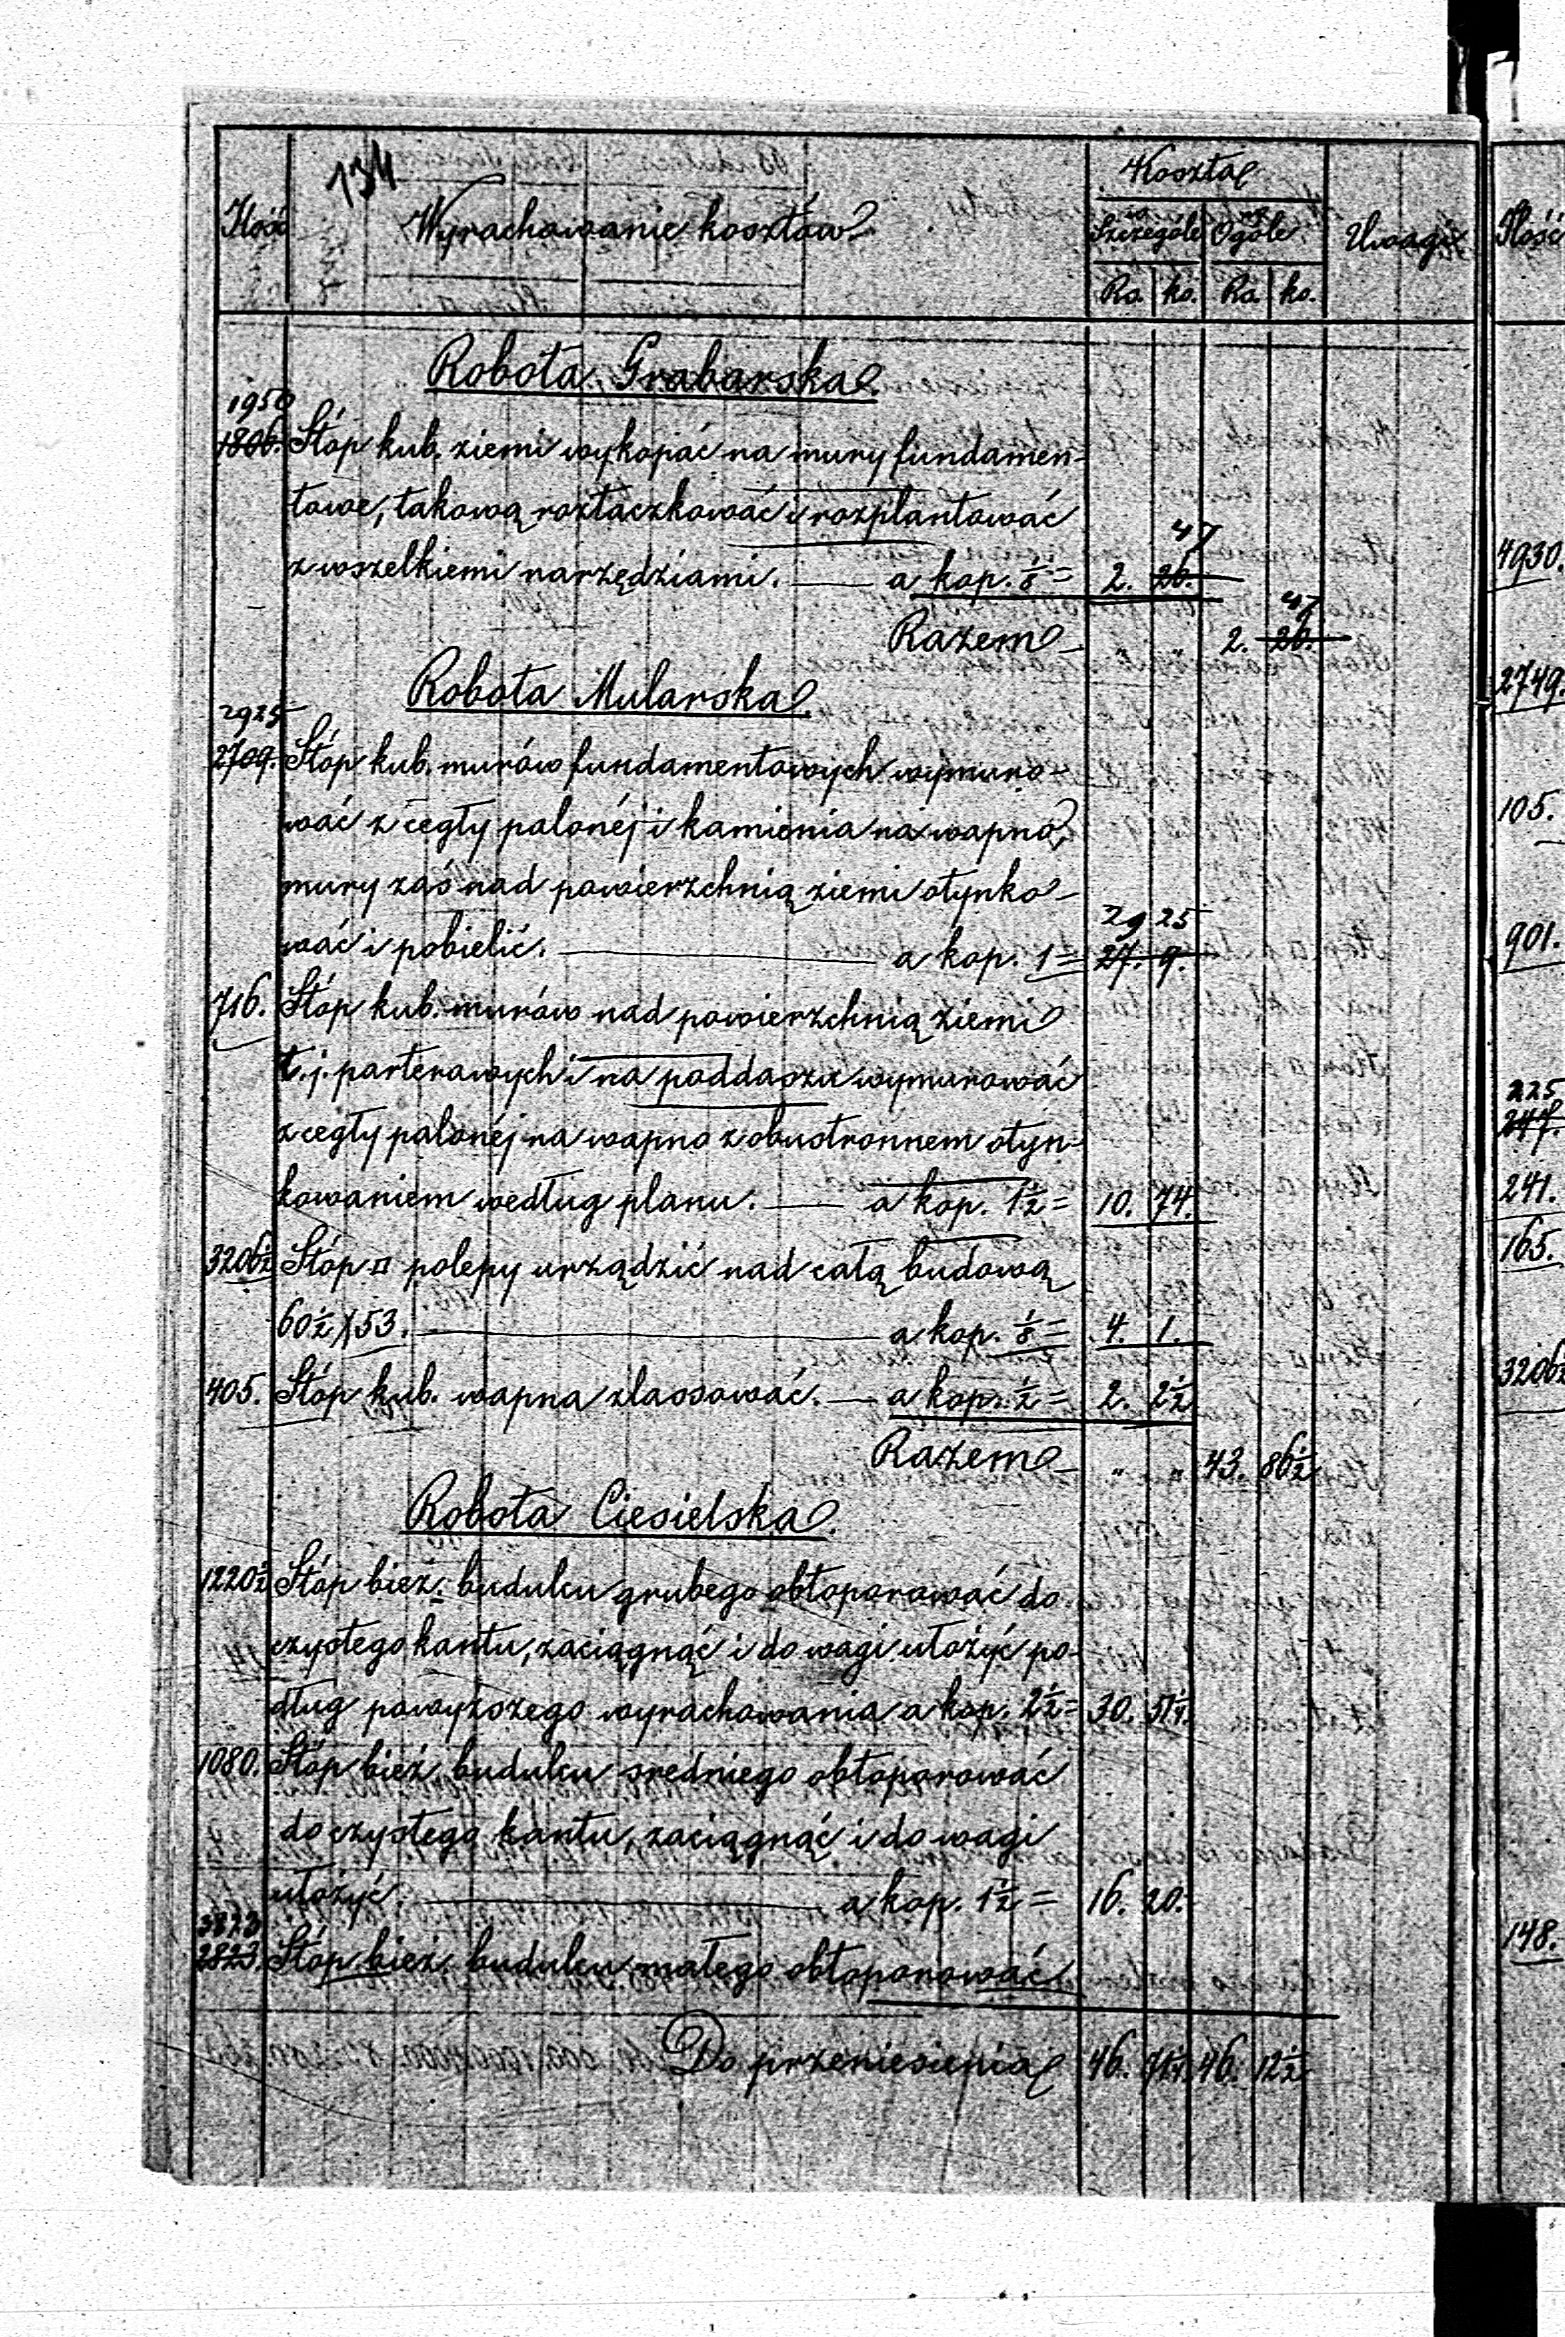 134
Koszta
Ilość Wyrachowanie kosztów w Szczególe na Ogóle Uwagi Ilość
Rs. ko. Rs. ko.
Robota Grabarska.
1950
1806. Stóp kub. ziemi wykopać na mury fundamen-
towe, takową roztaczkować i rozplantować
47
z wszelkiemi narzędziami. — a kop. 1/8 = 2. 26. 4930.
47
Razem " " 2. 26.
Robota Mularska 2749.
2925
2709. Stóp kub. murów fundamentowych wymuro-
wać z cegły palonéj i kamienia na wapno, 105.
mury zaś nad powierzchnią ziemi otynko-
29 25
wać i pobielić. — a kop. 1 = 27. 9. 901.
716. Stóp kub. murów nad powierzchnią ziemi
t. j. parterowych i na poddaszu wymurować 225.
z cegły palonéj na wapno z obustronnem otyn- 247.
kowaniem według planu. — a kop. 1 1/2 = 10. 74. 241.
3206 1/2 Stóp □ polepy urządzić nad całą budową 165.
60 1/2 X 53. — a kop. 1/8 = 4. 1.
405. Stóp kub. wapna zlassować. — a kop. 1/2 = 2. 2 1/2 3206 1/2
Razem " " 43. 86 1/2
Robota Ciesielska
1220 1/2 Stóp bież. budulcu grubego obtoporować do
czystego kantu, zaciągnąć i do wagi ułożyć po-
dług powyższego wyrachowania a kop. 2 1/2 = 30. 51 1/4.
1080. Stóp bież. budulcu sredniego obtoporować
do czystego kantu, zaciągnąć i do wagi
ułożyć. — a kop. 1 1/2 = 16. 20.
2823. Stóp bież. budulcu małego obtoporować 148.
Do przeniesienia 46. 71 1/4. 46. 12 1/2